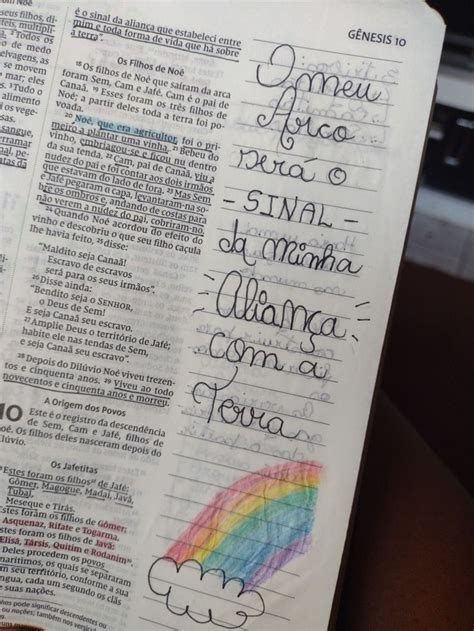 GÊNESIS 10
é o sinal da aliança que estabeleci entre
mim e toda forma de vida que há sobre
a terra".
Os Filhos de Noé
18 Os filhos de Noé que saíram da arca
foram Sem, Cam e Jafé. Cam é o pai de
Canaã. 19 Esses foram os três filhos de
Noé; a partir deles toda a terra foi po-
voada.
20 Noé, que era agricultor, foi o pri-
meiro a plantar uma vinha. 21 Bebeu do
vinho, embriagou-se e ficou nu dentro
da sua tenda. 22 Cam, pai de Canaã, viu a
nudez do pai e foi contar aos dois irmãos
que estavam do lado de fora. 23 Mas Sem
e Jafé pegaram a capa, levantaram-na so-
bre os ombros e, andando de costas para
não verem a nudez do pai, cobriram-no.
24 Quando Noé acordou do efeito do
vinho e descobriu o que seu filho caçula
lhe havia feito, 25 disse:
"Maldito seja Canaã!
Escravo de escravos
será para os seus irmãos".
26 Disse ainda:
"Bendito seja o SENHOR,
o Deus de Sem!
E seja Canaã seu escravo.
27 Amplie Deus o território de Jafé;
habite ele nas tendas de Sem,
e seja Canaã seu escravo".
28 Depois do Dilúvio Noé viveu trezen-
tos e cinquenta anos. 29 Viveu ao todo
novecentos e cinquenta anos e morreu.
A Origem dos Povos
10 Este é o registro da descendência
de Sem, Cam e Jafé, filhos de
Noé. Os filhos deles nasceram depois do
Dilúvio.
Os Jafetitas
Estes foram os filhos de Jafé:
Gômer, Magogue, Madai, Javã,
Tubal,
Meseque e Tirás.
Estes foram os filhos de Gômer:
Asquenaz, Rifate e Togarma.
Estes foram os filhos de Javã:
Elisá, Társis, Quitim e Rodanim".
Deles procedem os povos
marítimos, os quais se separaram
em seu território, conforme a sua
língua, cada um segundo os clãs
de suas nações.
O meu
Arco
será o
- SINAL -
da minha
Aliança
com a
Terra